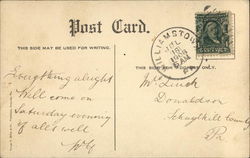 Post Card.
THIS SIDE MAY BE USED FOR WRITING.
WILLIAMSTOWN
JUL
1908
AM
PA.
THIS SIDE FOR ADDRESS ONLY.
Everything alright
Will come on
Saturday evening
if all's well
Donaldson
Schuylkill County
Pa.